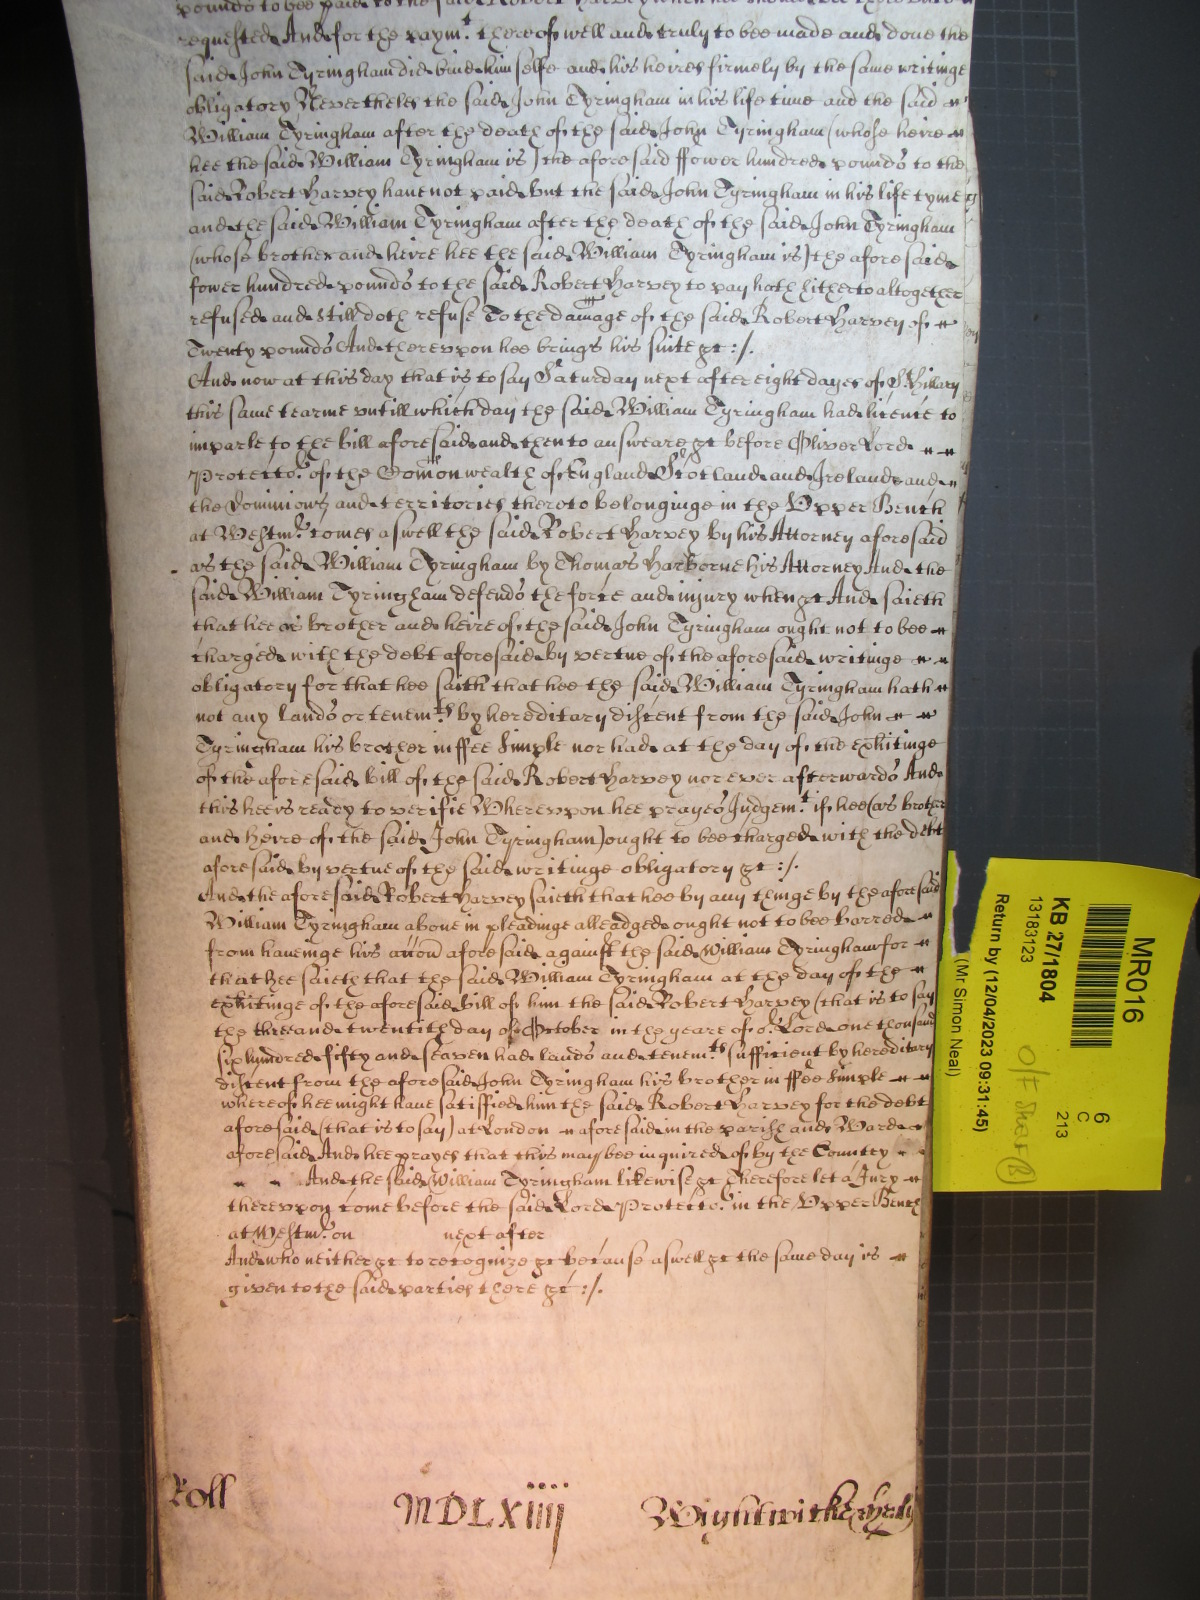 pounds to bee paid to the said Robert Harvey when hee should bee thereunto
requested And for the paym.t thereof well and truly to bee made and done the
said John Tyringham did bind him selfe and his heires firmely by the same writinge
obligatory Nevertheles the said John Tyringham in his life time and the said
William Tyringham after the death of the said John Tyringham (whose heire
hee the said William Tyringham is) the aforesaid ffower hundred pounds to the
said Robert Harvey have not paid but the said John Tyringham in his life tyme
and the said William Tyringham after the death of the said John Tyringham
(whose brother and heire hee the said William Tyringham is) the aforesaid
fower hundred pounds to the said Robert Harvey to pay hath hitherto altogether
refused and still doth refuse To the damage of the said Robert Harvey of
Twenty pounds And thereupon hee brings his suite &c :/.
And now at this day that is to say Saturday next after eight dayes of S.t Hillary
this same tearme untill which day the said William Tyringham had licence to
imparle to the bill aforesaid and then to answeare &c before Oliver Lord
Protecto.r of the Com̄onwealth of England Scotland and Ireland and
the Dominions and territories thereto belonginge in the Upper Bench
at Westm.r comes aswell the said Robert Harvey by his Attorney aforesaid
as the said William Tyringham by Thomas Harborne his Attorney And the
said William Tyringham defends the force and injury when &c And saieth
that hee as brother and heire of the said John Tyringham ought not to bee
charged with the debt aforesaid by vertue of the aforesaid writinge
obligatory for that hee saith that hee the said William Tyringham hath
not any lands or tenem.ts by hereditary discent from the said John
Tyringham his brother in ffee simple nor had at the day of the exhitinge
of the aforesaid bill of the said Robert Harvey nor ever afterwards And
this hee is ready to verifie Whereupon hee prayes Judgem.t if hee (as brother
and heire of the said John Tyringham) ought to bee charged with the debt
aforesaid by vertue of the said writinge obligatory &c :/.
And the aforesaid Robert Harvey saieth that hee by any thinge by the aforesaid
William Tyringham above in pleadinge alleadged ought not to bee barred
from haveinge his acc̄on aforesaid against the said William Tyringham for
that hee saieth that the said William Tyringham at the day of the
exhitinge of the aforesaid bill of him the said Robert Harvey (that is to say
the three and twentith day of October in the yeare of o.r Lord one thousand
six hundred fifty and seaven had lands and tenem.ts sufficient by hereditary
discent from the aforesaid John Tyringham his brother in ffee simple
whereof hee might have satisfied him the said Robert Harvey for the debt
aforesaid (that is to say) at London aforesaid in the parish and Ward
aforesaid And hee prayes that this may bee inquired of by the Country
And the said William Tyringham likewise &c Therefore let a Jury
thereupon come before the said Lord Protecto.r in the Upper Bench
at Westm.r on next after
And who neither &c to recognize &c because aswell &c the same day is
given to the said parties there &c :/.
Roll MDLXiiij Wightwicke
MR016
KB 27/1804
13183123
Return by (12/04/2023 09:31:45)
(Mr Simon Neal)
6
C
213